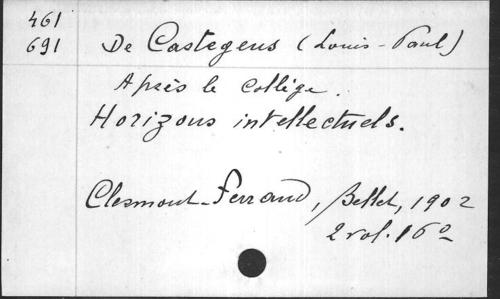 461
691
De Castegens (Louis-Paul)
Après le collège.
Horizons intellectuels.
Clermont-Ferrand, Bellet, 1902
2 vol. 16º